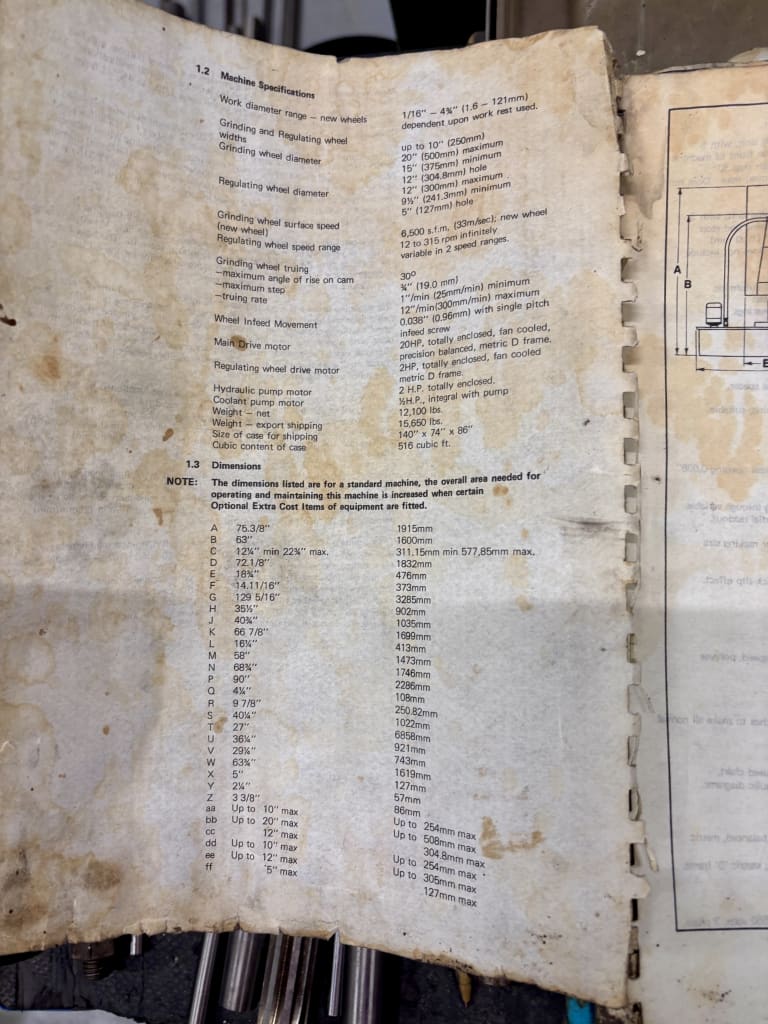 1.2 Machine Specifications
Work diameter range – new wheels 1/16" – 4¾" (1.6 – 121mm)
dependent upon work rest used.
Grinding and Regulating wheel
widths up to 10" (250mm)
Grinding wheel diameter 20" (500mm) maximum
15" (375mm) minimum
12" (304.8mm) hole
Regulating wheel diameter 12" (300mm) maximum
9½" (241.3mm) minimum
5" (127mm) hole
Grinding wheel surface speed
(new wheel) 6,500 s.f.m. (33m/sec); new wheel
Regulating wheel speed range 12 to 315 rpm infinitely
variable in 2 speed ranges.
Grinding wheel truing
–maximum angle of rise on cam 30º
–maximum step ¾" (19.0 mm)
–truing rate 1"/min (25mm/min) minimum
12"/min(300mm/min) maximum
Wheel Infeed Movement 0.038" (0.96mm) with single pitch
infeed screw
Main Drive motor 20HP, totally enclosed, fan cooled,
precision balanced, metric D frame.
Regulating wheel drive motor 2HP, totally enclosed, fan cooled
metric D frame.
Hydraulic pump motor 2 H.P. totally enclosed.
Coolant pump motor ½H.P., integral with pump
Weight – net 12,100 lbs.
Weight – export shipping 15,650 lbs.
Size of case for shipping 140" x 74" x 86"
Cubic content of case 516 cubic ft.
1.3 Dimensions
NOTE: The dimensions listed are for a standard machine, the overall area needed for
operating and maintaining this machine is increased when certain
Optional Extra Cost Items of equipment are fitted.
A 75.3/8" 1915mm
B 63" 1600mm
C 12¼" min 22¾" max. 311.15mm min 577,85mm max.
D 72.1/8" 1832mm
E 18¾" 476mm
F 14.11/16" 373mm
G 129 5/16" 3285mm
H 35½" 902mm
J 40¾" 1035mm
K 66 7/8" 1699mm
L 16¼" 413mm
M 58" 1473mm
N 68¾" 1746mm
P 90" 2286mm
Q 4¼" 108mm
R 9 7/8" 250.82mm
S 40¼" 1022mm
T 27" 6858mm
U 36¼" 921mm
V 29¼" 743mm
W 63¾" 1619mm
X 5" 127mm
Y 2¼" 57mm
Z 3 3/8" 86mm
aa Up to 10" max Up to 254mm max
bb Up to 20" max Up to 508mm max
cc 12" max 304.8mm max
dd Up to 10" max Up to 254mm max
ee Up to 12" max Up to 305mm max
ff 5" max 127mm max
A
B
E